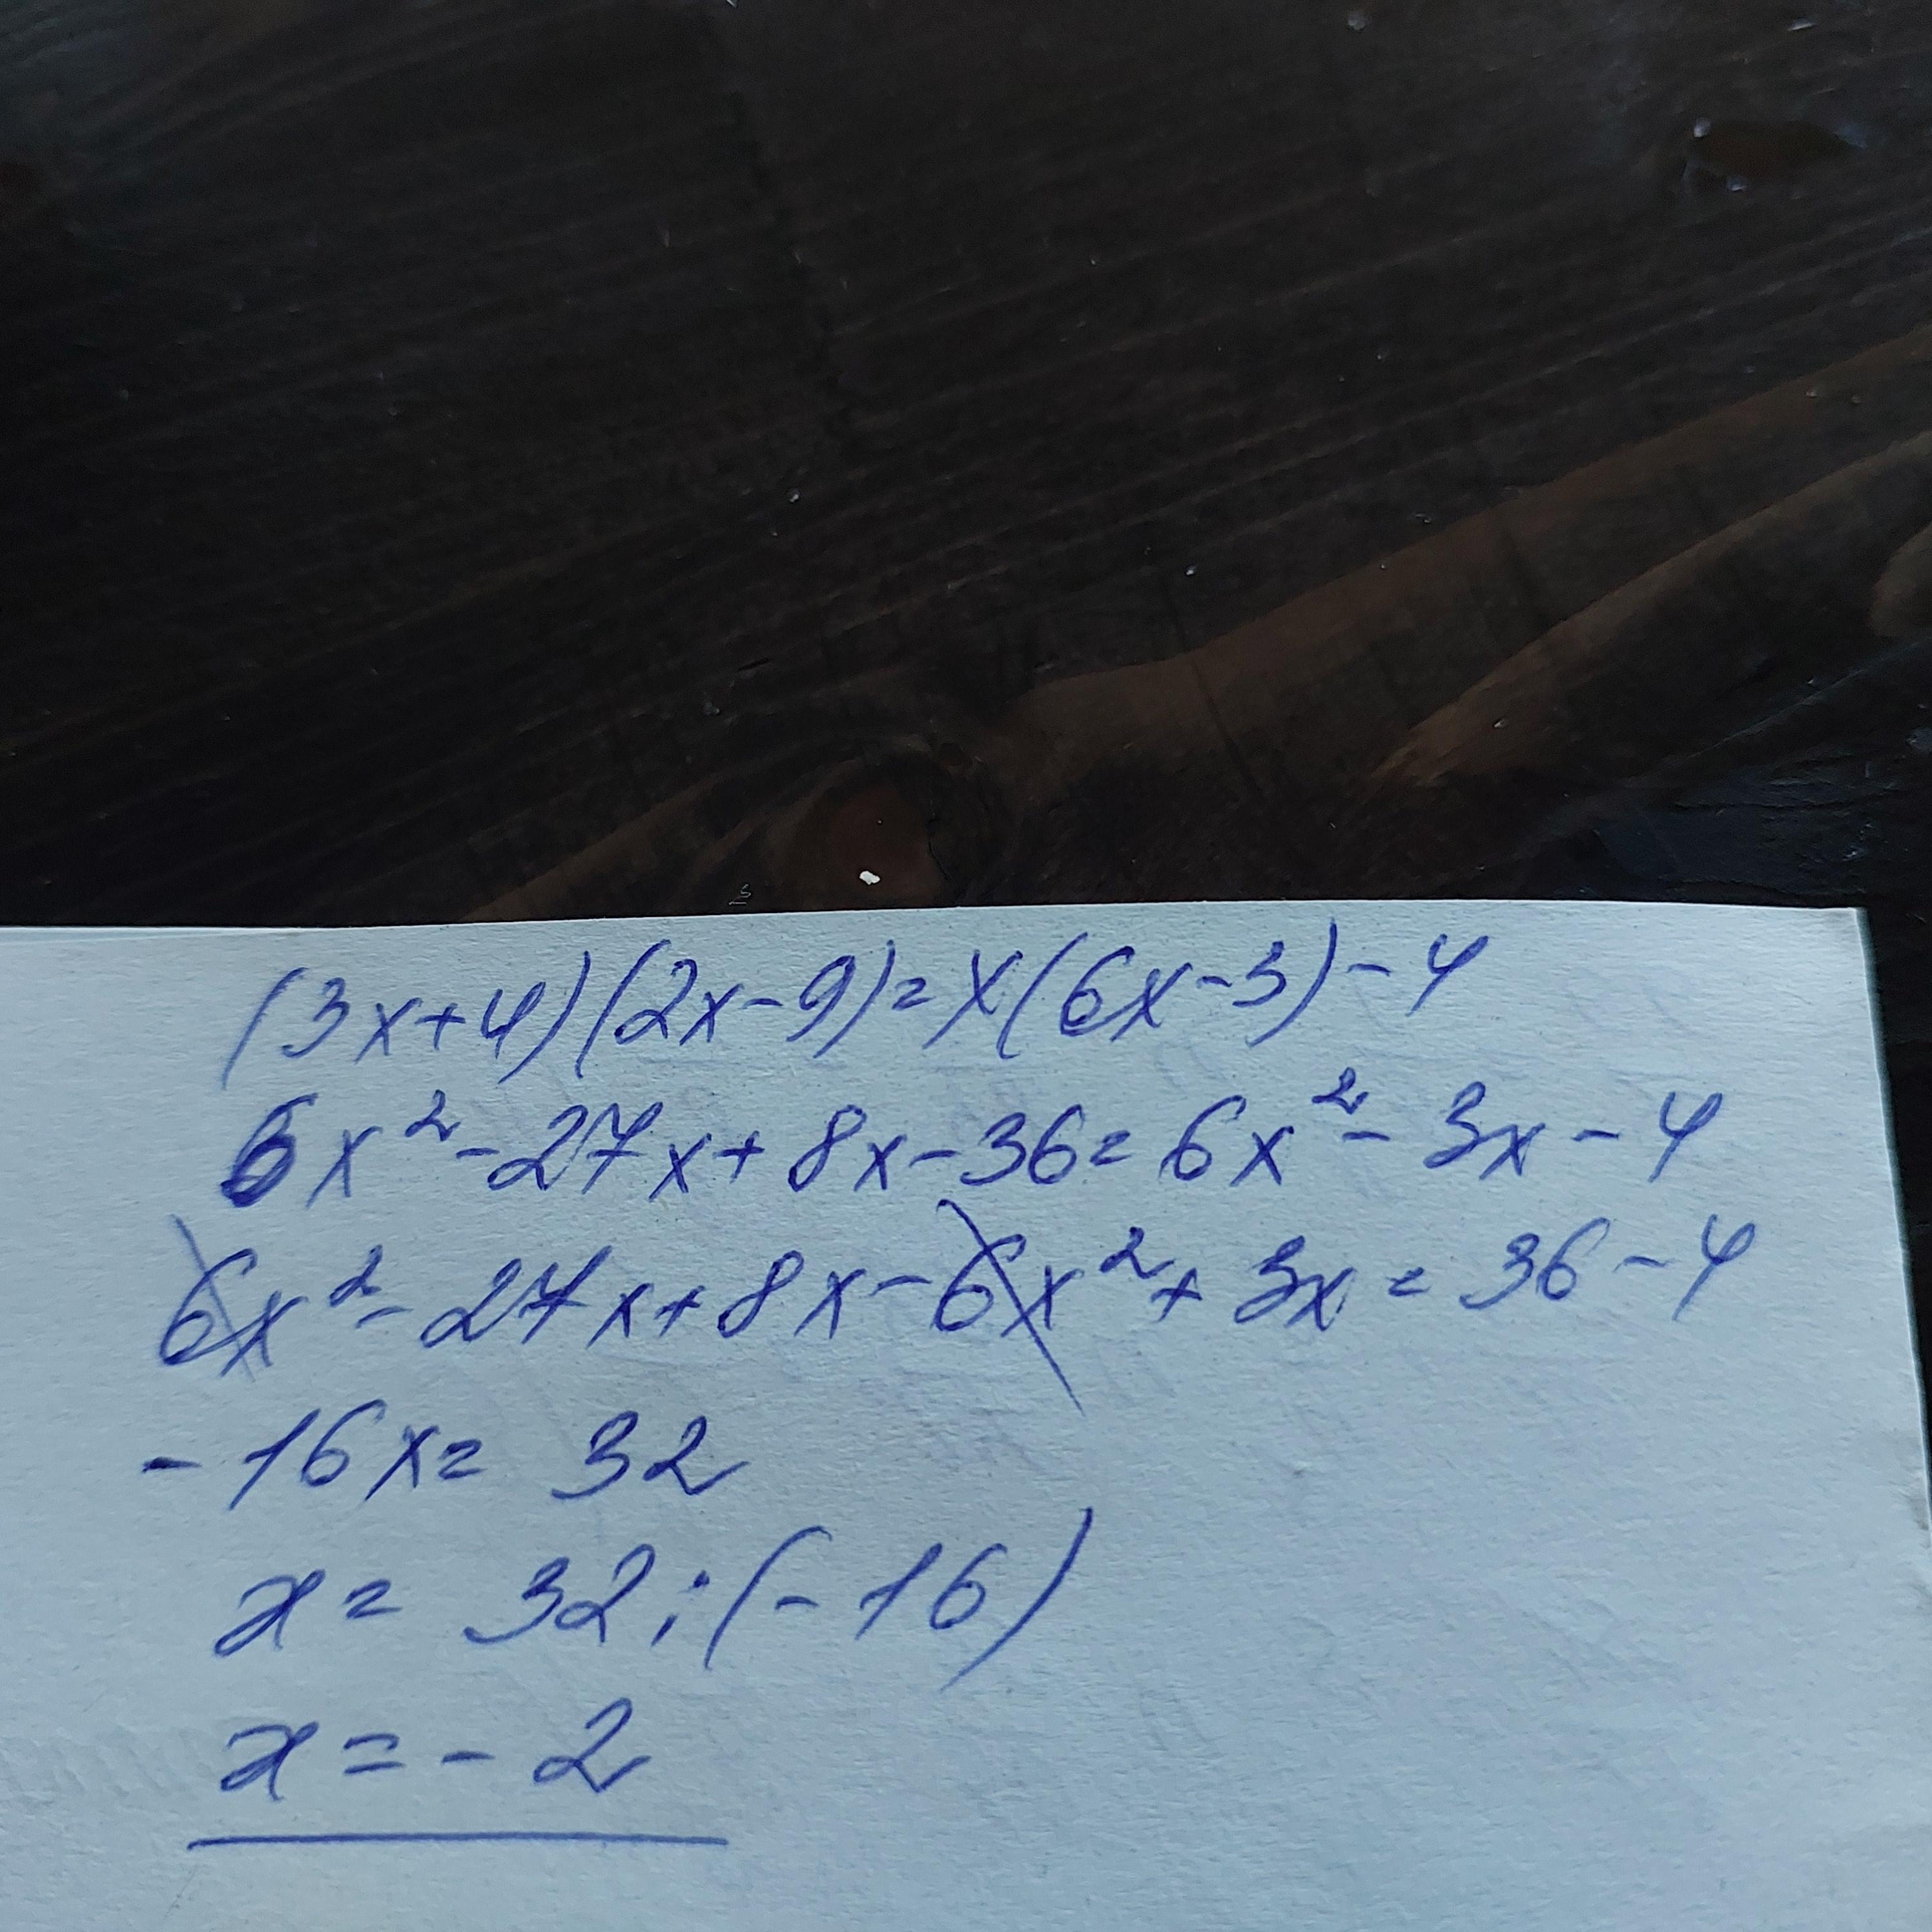 (3x+4)(2x-9)=x(6x-3)-4
6x²-27x+8x-36=6x²-3x-4
6x²-27x+8x-6x²+3x=36-4
-16x=32
x=32:(-16)
x=-2